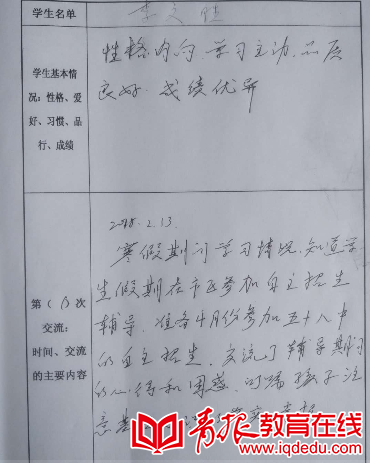 学生名单
李文胜
学生基本情
况：性格、爱
好、习惯、品
行、成绩
性格内向、学习主动、品质
良好、成绩优异
第（1）次
交流：
时间、交流
的主要内容
2018.2.13.
寒假期间学习情况，知道学
生假期在千正参加自主招生
辅导，准备4月份参加五十八中
的自主招生，交流了辅导期间
的心得和困惑，叮嘱孩子注
意
青报教育在线
www.iqdedu.com